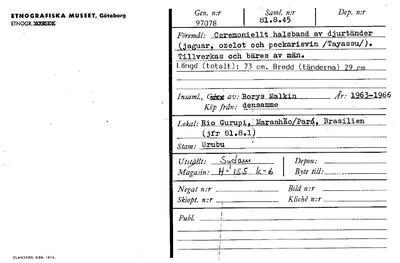 ETNOGRAFISKA MUSEET, Göteborg
ETNOGR.
Gen. n:r Saml. n:r Dep. n:r
97078 81.8.45
Föremål: Ceremoniellt halsband av djurtänder
(jaguar, ozelot och peckarisvin /Tayassu/).
Tillverkas och bäres av män.
Längd (totalt): 73 cm. Bredd (tänderna) 29 cm
Insaml., av: Borys Malkin År: 1963-1966
Köp från: densamme
Lokal: Rio Gurupi, Maranhão/Pará, Brasilien
(jfr 81.8.1)
Stam: Urubu
Utställt: Sydam Depon:
Magasin: H-155 k-6 Byte till:
Negat n:r Bild n:r
Skiopt. n:r Kliché n:r
Publ.
ELANDERS, GBG. 1970.